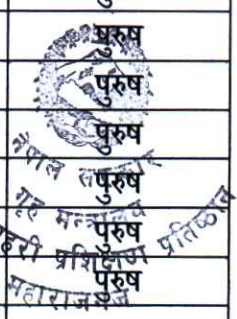 पुरुष
पुरुष
पुरुष
पुरुष
पुरुष
पुरुष
नेपाल सरकार
गृह मन्त्रालय
प्रहरी प्रशिक्षण प्रतिष्ठान
महाराजगंज